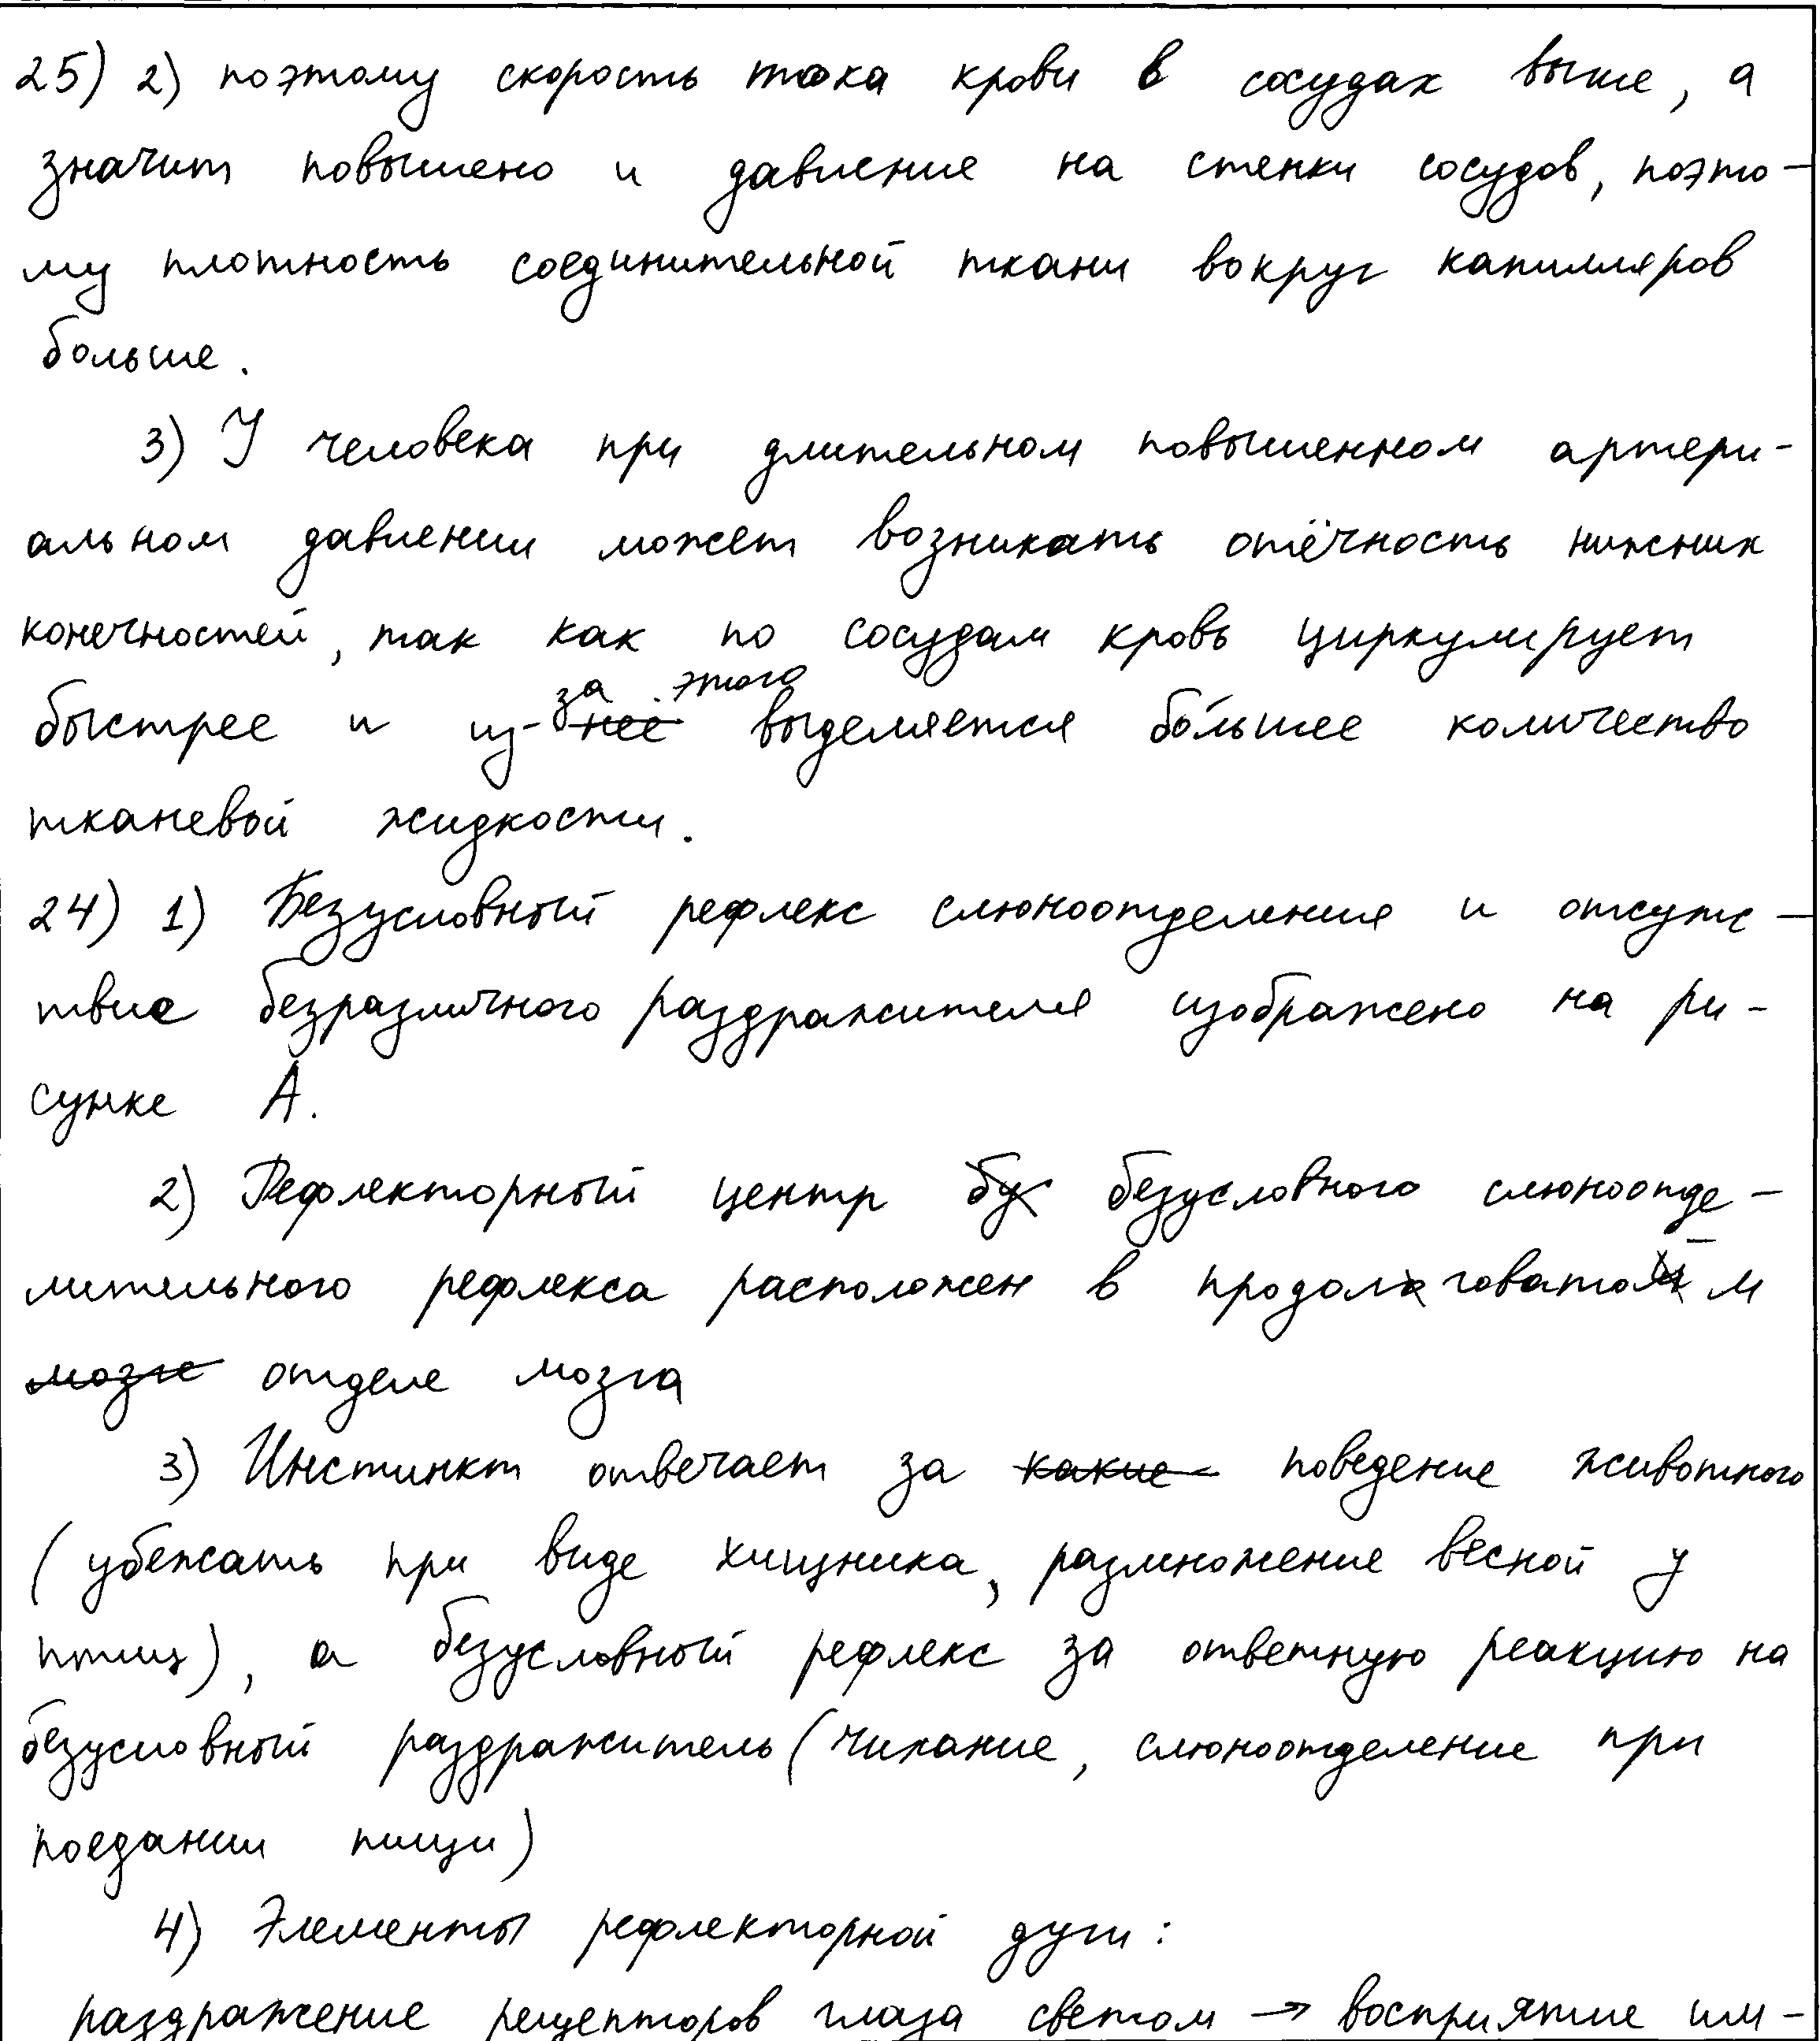 25) 2) поэтому скорость тока крови в сосудах выше, а
значит повышено и давление на стенки сосудов, поэто-
му плотность соединительной ткани вокруг капилляров
больше.
3) У человека при длительном повышенном артери-
альном давлении может возникать отёчность нижних
конечностей, так как по сосудам кровь циркулирует
быстрее и из-за этого выделяется бо́льшее количество
тканевой жидкости.
24) 1) Безусловный рефлекс слюноотделения и отсутс-
твие безразличного раздражителя изображено на ри-
сунке А.
2) Рефлекторный центр безусловного слюноотде-
лительного рефлекса расположен в продолговатом
отделе мозга
3) Инстинкт отвечает за поведение животного
(убежать при виде хищника, размножение весной у
птиц), а безусловный рефлекс за ответную реакцию на
безусловный раздражитель (чихание, слюноотделение при
поедании пищи)
4) Элементы рефлекторной дуги:
раздражение рецепторов глаза светом → восприятие им-